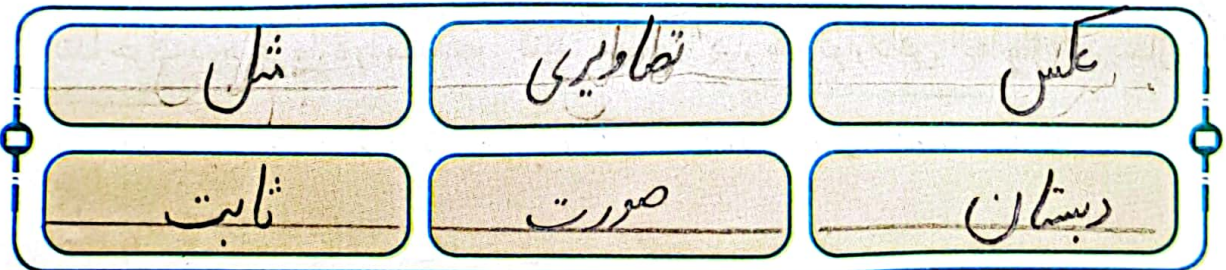 عکس تصاویری مثل
دبستان صورت ثابت